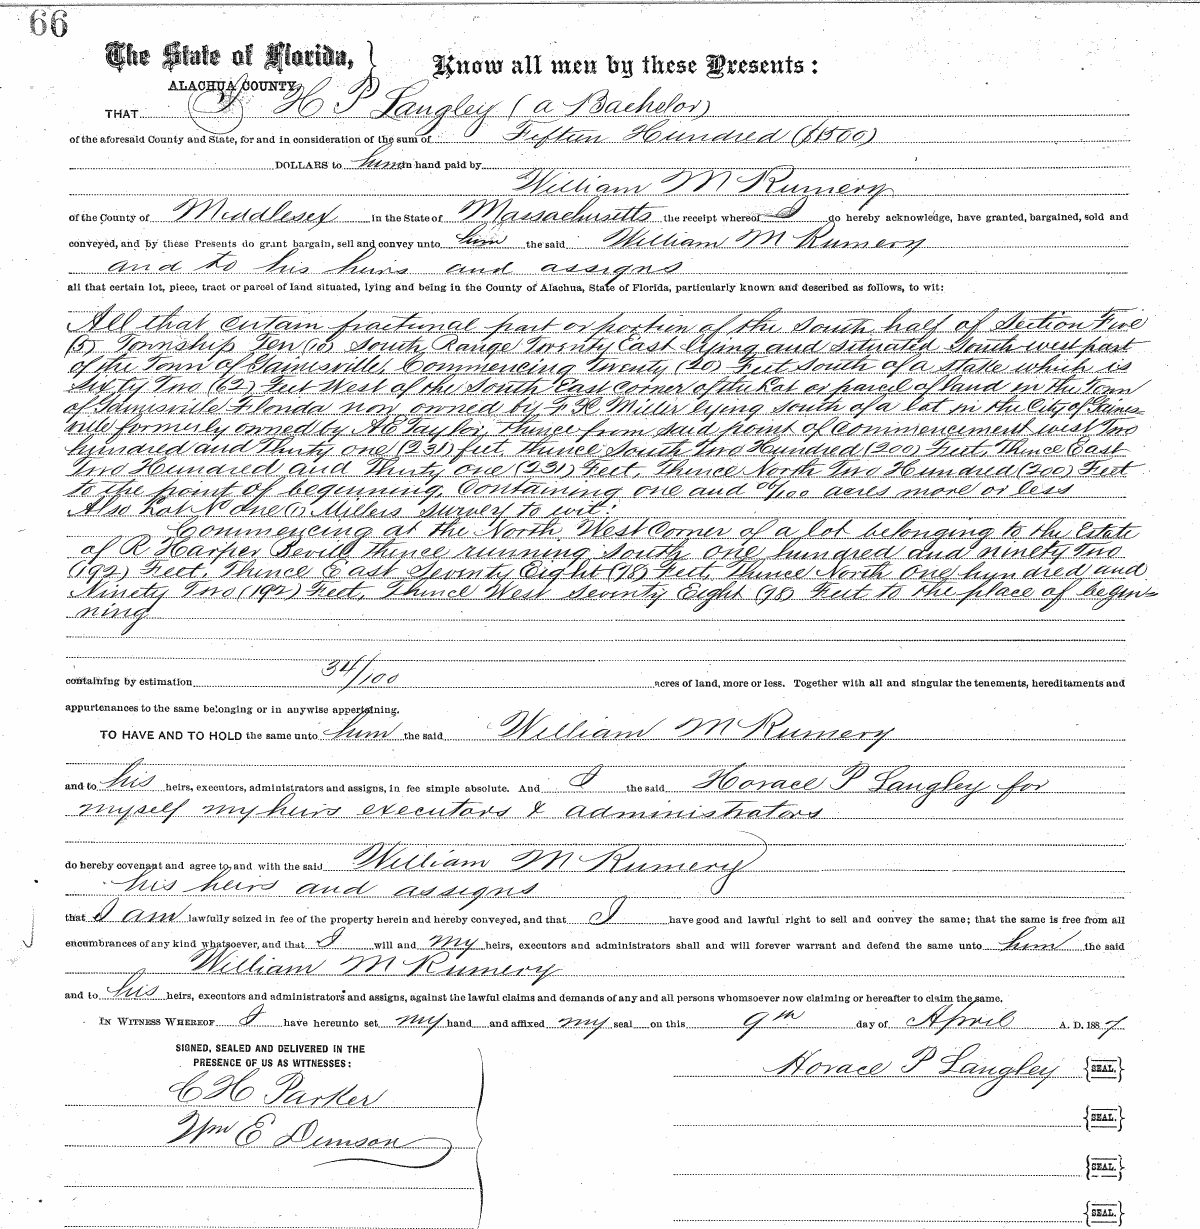 66
The State of Florida, } Know all men by these Presents:
ALACHUA COUNTY,
THAT I H P Langley (a Bachelor)
of the aforesaid County and State, for and in consideration of the sum of Fifteen Hundred ($1500)
DOLLARS to him in hand paid by
William M Rumery
of the County of Middlesex in the State of Massachusetts the receipt whereof I do hereby acknowledge, have granted, bargained, sold and
conveyed, and by these Presents do grant bargain, sell and convey unto him the said William M Rumery
and to his heirs and assigns
all that certain lot, piece, tract or parcel of land situated, lying and being in the County of Alachua, State of Florida, particularly known and described as follows, to wit:
All that certain fractional part or portion of the South half of Section Five
(5) Township Ten (10) South Range Twenty East lying and situated South west part
of the Town of Gainesville, Commencing Twenty (20) Feet South of a stake which is
Sixty Two (62) Feet West of the South East Corner of the or parcel of land in the Town
of Gainesville Florida now owned by F K Miller lying south of a lot in the City of Gaines-
ville formerly owned by A E Taylor, thence from said point of commencement west Two
hundred and Thirty one (231) feet thence South Two Hundred (200) Feet, Thence East
Two Hundred and Thirty one (231) Feet, Thence North Two Hundred (200) Feet
to the point of beginning, Containing one and 06/100 acres more or less
Also Lot No one (1) Millers survey to wit:
Commencing at the North West Corner of a lot belonging to the Estate
of R Harper Bevill thence running South one hundred and ninety two
(192) Feet, Thence East Seventy Eight (78) Feet, Thence North One hundred and
Ninety Two (192) Feet, Thence West Seventy Eight (78) Feet to the place of begin-
ning
containing by estimation 34/100 acres of land, more or less. Together with all and singular the tenements, hereditaments and
appurtenances to the same belonging or in anywise appertaining.
TO HAVE AND TO HOLD the same unto him the said William M Rumery
and to his heirs, executors, administrators and assigns, in fee simple absolute. And I the said Horace P Langley for
myself my heirs executors & administrators
do hereby covenant and agree to and with the said William M Rumery
his heirs and assigns
that I am lawfully seized in fee of the property herein and hereby conveyed, and that I have good and lawful right to sell and convey the same; that the same is free from all
encumbrances of any kind whatsoever, and that I will and my heirs, executors and administrators shall and will forever warrant and defend the same unto him the said
William M Rumery
and to his heirs, executors and administrators and assigns, against the lawful claims and demands of any and all persons whomsoever now claiming or hereafter to claim the same.
IN WITNESS WHEREOF I have hereunto set my hand and affixed my seal on this 9th day of April A. D. 1887
SIGNED, SEALED AND DELIVERED IN THE
PRESENCE OF US AS WITNESSES:
Horace P Langley {SEAL.}
C H Parker
{SEAL.}
Wm E
{SEAL.}
{SEAL.}